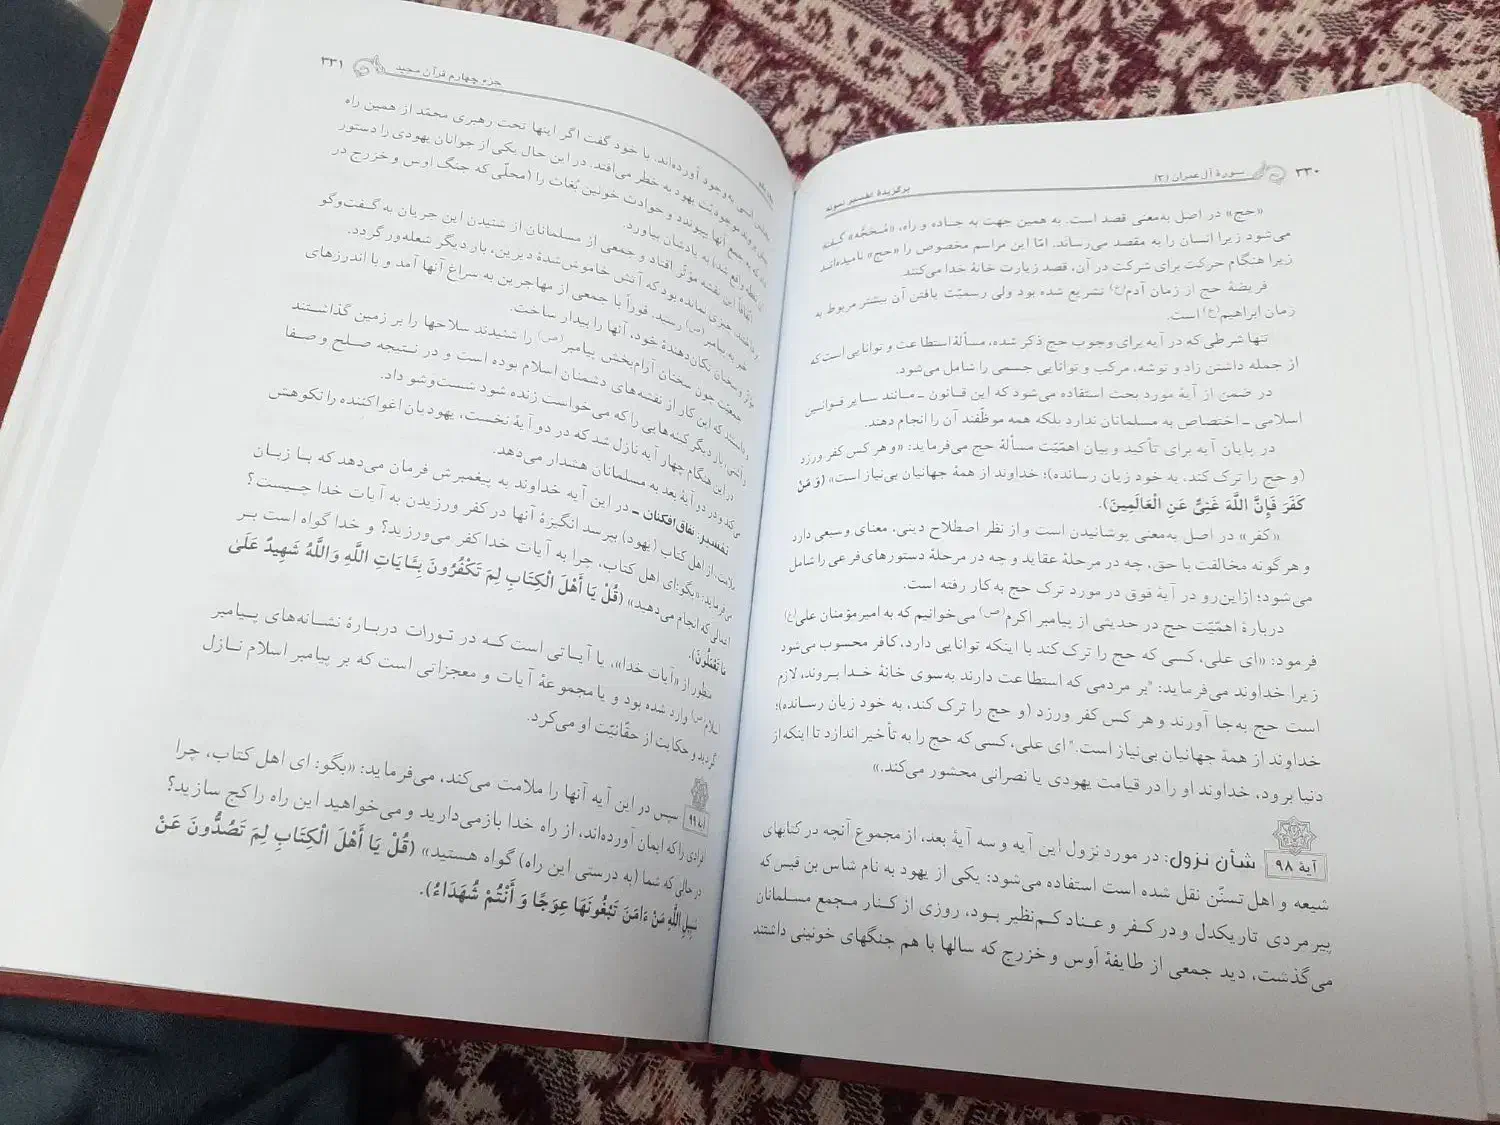 ۳۳۰ سورهٔ آل عمران (۳) برگزیدهٔ تفسیر نمونه
«حج» در اصل به‌معنی قصد است. به همین جهت به جاده و راه، «مَحَجَّه» گفته
می‌شود زیرا انسان را به مقصد می‌رساند. امّا این مراسم مخصوص را «حج» نامیده‌اند
زیرا هنگام حرکت برای شرکت در آن، قصد زیارت خانهٔ خدا می‌کنند.
فریضهٔ حج از زمان آدم(ع) تشریع شده بود ولی رسمیّت یافتن آن بیشتر مربوط به
زمان ابراهیم(ع) است.
تنها شرطی که در آیه برای وجوب حج ذکر شده، مسألهٔ استطاعت و توانایی است که
از جمله داشتن زاد و توشه، مرکب و توانایی جسمی را شامل می‌شود.
در ضمن از آیهٔ مورد بحث استفاده می‌شود که این قانون ـ مانند سایر قوانین
اسلامی ـ اختصاص به مسلمانان ندارد بلکه همه موظّفند آن را انجام دهند.
در پایان آیه برای تأکید و بیان اهمّیّت مسألهٔ حج می‌فرماید: «و هر کس کفر ورزد
(و حج را ترک کند، به خود زیان رسانده)؛ خداوند از همهٔ جهانیان بی‌نیاز است» (وَ مَنْ
کَفَرَ فَإِنَّ اللَّهَ غَنِیٌّ عَنِ الْعَالَمِینَ).
«کفر» در اصل به‌معنی پوشانیدن است و از نظر اصطلاح دینی، معنای وسیعی دارد
و هرگونه مخالفت با حق، چه در مرحلهٔ عقاید و چه در مرحلهٔ دستورهای فرعی را شامل
می‌شود؛ ازاین‌رو در آیهٔ فوق در مورد ترک حج به کار رفته است.
دربارهٔ اهمّیّت حج در حدیثی از پیامبر اکرم(ص) می‌خوانیم که به امیرمؤمنان علی(ع)
فرمود: «ای علی، کسی که حج را ترک کند با اینکه توانایی دارد، کافر محسوب می‌شود
زیرا خداوند می‌فرماید: "بر مردمی که استطاعت دارند به‌سوی خانهٔ خدا بروند، لازم
است حج به‌جا آورند و هر کس کفر ورزد (و حج را ترک کند، به خود زیان رسانده)؛
خداوند از همهٔ جهانیان بی‌نیاز است." ای علی، کسی که حج را به تأخیر اندازد تا اینکه از
دنیا برود، خداوند او را در قیامت یهودی یا نصرانی محشور می‌کند.»
آیهٔ ۹۸ شأن نزول: در مورد نزول این آیه و سه آیهٔ بعد، از مجموع آنچه در کتابهای
شیعه و اهل تسنّن نقل شده است استفاده می‌شود: یکی از یهود به نام شاس بن قیس که
پیرمردی تاریکدل و در کفر و عناد کم‌نظیر بود، روزی از کنار مجمع مسلمانان
می‌گذشت، دید جمعی از طایفهٔ اَوس و خزرج که سالها با هم جنگهای خونینی داشتند
جزء چهارم قرآن مجید ۳۳۱
به‌وجود آورده‌اند. با خود گفت اگر اینها تحت رهبری محمّد از همین راه
موجودیّت یهود به خطر می‌افتد. در این حال یکی از جوانان یهودی را دستور
داد که به جمع آنها بپیوندد و حوادث خونین بُغاث را (محلّی که جنگ اوس و خزرج در
آن نقطه واقع شد) به یادشان بیاورد.
اتّفاقاً این نقشه مؤثّر افتاد و جمعی از مسلمانان از شنیدن این جریان به گفت‌وگو
چیزی نمانده بود که آتش خاموش‌شدهٔ دیرین، بار دیگر شعله‌ور گردد.
خبر به پیامبر(ص) رسید. فوراً با جمعی از مهاجرین به سراغ آنها آمد و با اندرزهای
مؤثّر و سخنان تکان‌دهندهٔ خود، آنها را بیدار ساخت.
جمعیّت چون سخنان آرام‌بخش پیامبر(ص) را شنیدند سلاحها را بر زمین گذاشتند
و دانستند که این کار از نقشه‌های دشمنان اسلام بوده است و در نتیجه صلح و صفا
و آشتی، بار دیگر کینه‌هایی را که می‌خواست زنده شود شست‌وشو داد.
در این هنگام چهار آیه نازل شد که در دو آیهٔ نخست، یهودیان اغواکننده را نکوهش
می‌کند و در دو آیهٔ بعد به مسلمانان هشدار می‌دهد.
تفسیر: نفاق‌افکنان ـ در این آیه خداوند به پیغمبرش فرمان می‌دهد که با زبان
ملامت، از اهل کتاب (یهود) بپرسد انگیزهٔ آنها در کفر ورزیدن به آیات خدا چیست؟
می‌فرماید: «بگو: ای اهل کتاب، چرا به آیات خدا کفر می‌ورزید؟ و خدا گواه است بر
اعمالی که انجام می‌دهید» (قُلْ یَا أَهْلَ الْکِتَابِ لِمَ تَکْفُرُونَ بِـَٔایَاتِ اللَّهِ وَاللَّهُ شَهِیدٌ عَلَیٰ
مَا تَعْمَلُونَ).
منظور از «آیات خدا»، یا آیاتی است که در تورات دربارهٔ نشانه‌های پیامبر
اسلام(ص) وارد شده بود و یا مجموعهٔ آیات و معجزاتی است که بر پیامبر اسلام نازل
گردید و حکایت از حقّانیّت او می‌کرد.
آیهٔ ۹۹ سپس در این آیه آنها را ملامت می‌کند، می‌فرماید: «بگو: ای اهل کتاب، چرا
افرادی را که ایمان آورده‌اند، از راه خدا بازمی‌دارید و می‌خواهید این راه را کج سازید؟
در حالی که شما (به درستی این راه) گواه هستید» (قُلْ یَا أَهْلَ الْکِتَابِ لِمَ تَصُدُّونَ عَنْ
سَبِیلِ اللَّهِ مَنْ ءَامَنَ تَبْغُونَهَا عِوَجًا وَ أَنْتُمْ شُهَدَاءُ).